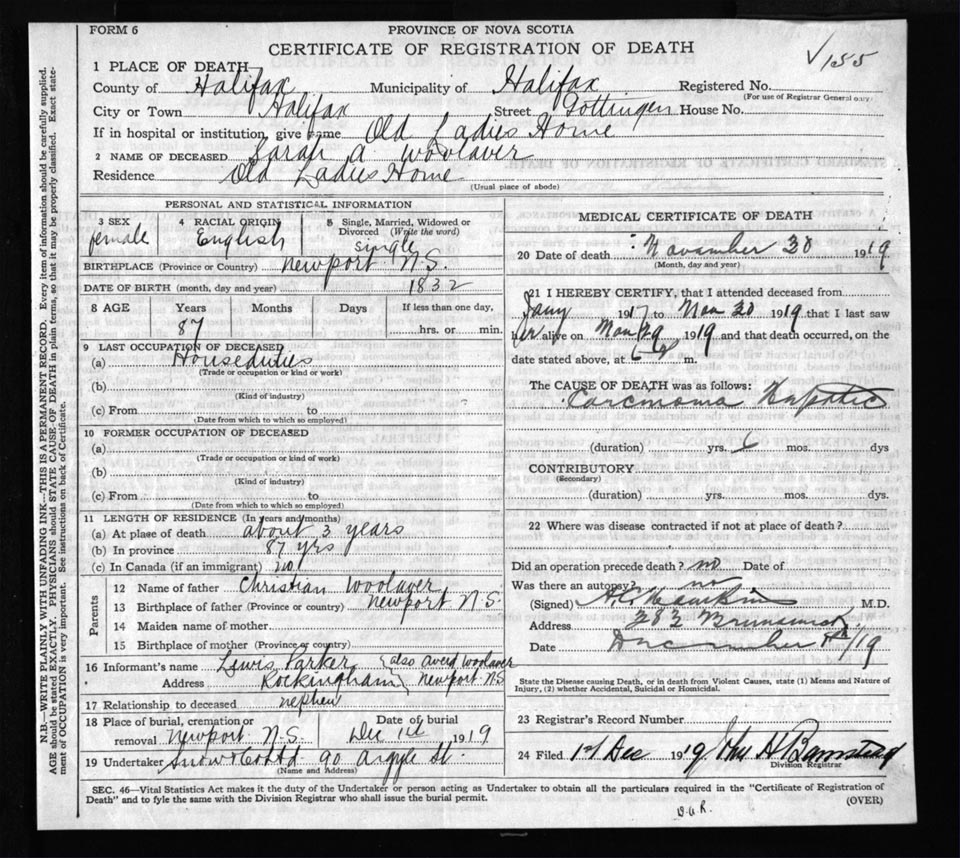 FORM 6
PROVINCE OF NOVA SCOTIA
CERTIFICATE OF REGISTRATION OF DEATH
√155
1 PLACE OF DEATH
County of Halifax Municipality of Halifax Registered No.
(For use of Registrar General only)
City or Town Halifax Street Gottingen House No.
If in hospital or institution, give name Old Ladies Home
2 NAME OF DECEASED Sarah A Woolaver
Residence Old Ladies Home
(Usual place of abode)
PERSONAL AND STATISTICAL INFORMATION
3 SEX female
4 RACIAL ORIGIN English
5 Single, Married, Widowed or Divorced (Write the word) single
BIRTHPLACE (Province or Country) Newport N.S.
DATE OF BIRTH (month, day and year) 1832
8 AGE Years Months Days If less than one day,
87 hrs. or min.
9 LAST OCCUPATION OF DECEASED
(a) Houseduties
(Trade or occupation or kind or work)
(b)
(Kind of industry)
(c) From to
(Date from which to which so employed)
10 FORMER OCCUPATION OF DECEASED
(a)
(Trade or occupation or kind of work)
(b)
(Kind of industry)
(c) From to
(Date from which to which so employed)
11 LENGTH OF RESIDENCE (In years and months)
(a) At place of death about 3 years
(b) In province 87 yrs
(c) In Canada (if an immigrant) no
Parents
12 Name of father Christian Woolaver
13 Birthplace of father (Province or country) Newport N.S.
14 Maiden name of mother
15 Birthplace of mother (Province or country)
16 Informant's name Lewis Parker also Woolaver
Address Rockingham Newport N.S
17 Relationship to deceased nephew
18 Place of burial, cremation or Date of burial
removal Newport N.S. Dec 1st 1919
19 Undertaker Snow & Co Ltd 90 Argyle St.
(Name and Address)
MEDICAL CERTIFICATE OF DEATH
20 Date of death November 30 1919
(Month, day and year)
21 I HEREBY CERTIFY, that I attended deceased from
Jany 1917 to Nov 30 1919 that I last saw
her alive on Nov 29 1919 and that death occurred, on the
date stated above, at m.
The CAUSE OF DEATH was as follows:
Carcinoma Hepatic
(duration) yrs. 6 mos. dys
CONTRIBUTORY
(Secondary)
(duration) yrs. mos. dys.
22 Where was disease contracted if not at place of death?
Did an operation precede death? no Date of
Was there an autopsy? no
(Signed) M.D.
Address 282 Brunswick
Date December /19
State the Disease causing Death, or in death from Violent Causes, state (1) Means and Nature of
Injury, (2) whether Accidental, Suicidal or Homicidal.
23 Registrar's Record Number
24 Filed 1st Dec 1919
Division Registrar
SEC. 46—Vital Statistics Act makes it the duty of the Undertaker or person acting as Undertaker to obtain all the particulars required in the "Certificate of Registration of
Death" and to fyle the same with the Division Registrar who shall issue the burial permit.
(OVER)
N.B.—WRITE PLAINLY WITH UNFADING INK—THIS IS A PERMANENT RECORD. Every item of information should be carefully supplied.
AGE should be stated EXACTLY. PHYSICIANS should STATE CAUSE OF DEATH in plain terms, so that it may be properly classified. Exact state-
ment of OCCUPATION is very important. See instructions on back of Certificate.